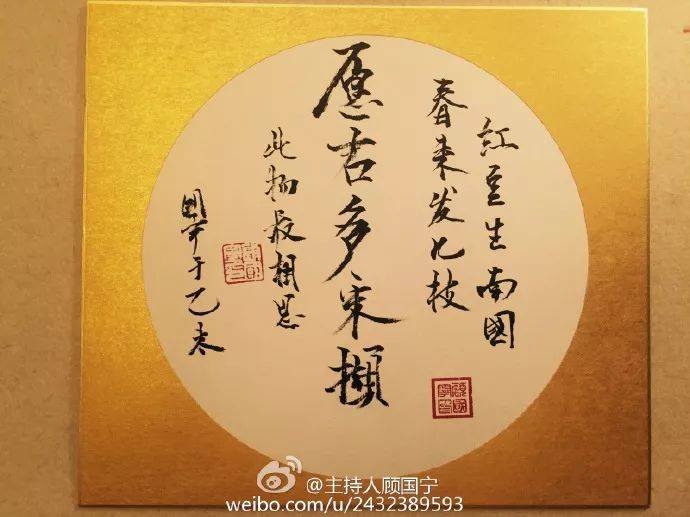 红豆生南國
春来发几枝
愿君多采擷
此物最相思
國宁于乙未
@主持人顾国宁
weibo.com/u/2432389593